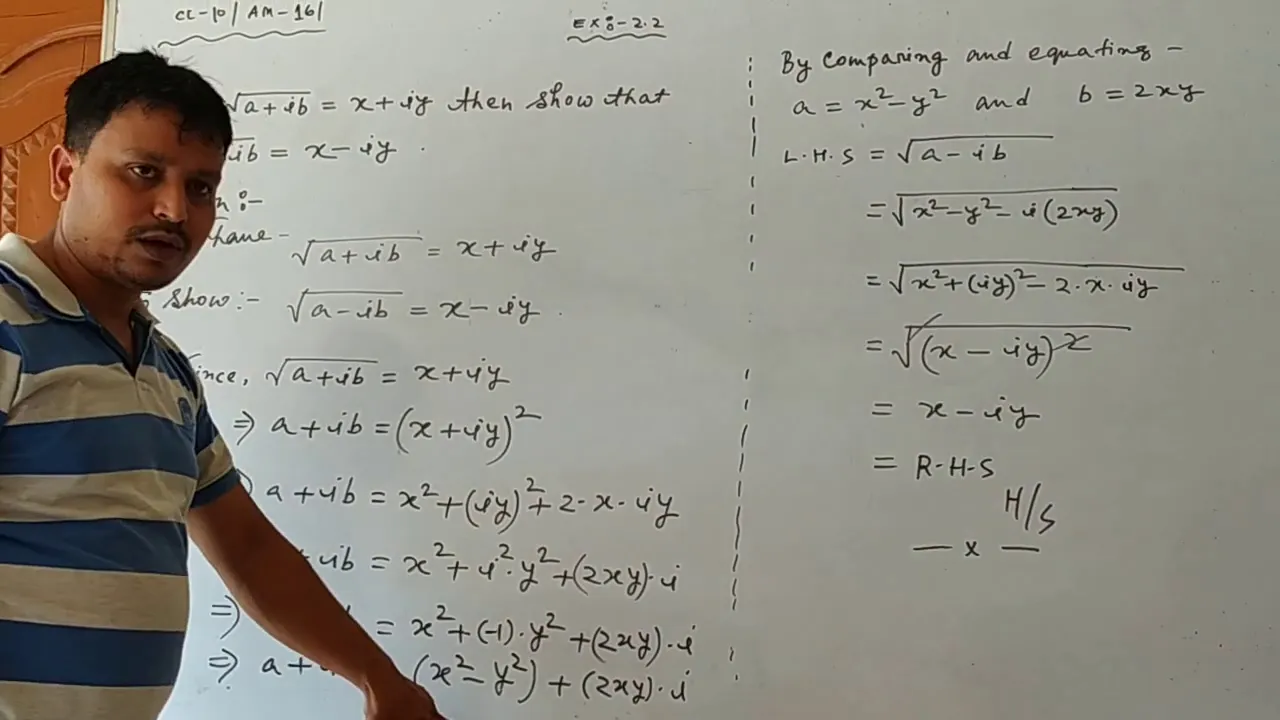 CL-10/ AM-16/
EX:-2.2
√a+ib = x+iy then show that
ib = x-iy .
n :-
have -
√a+ib = x+iy
show:- √a-ib = x-iy .
ince, √a+ib = x+iy
⇒ a+ib = (x+iy)²
a+ib = x²+(iy)²+2·x·iy
+ib = x²+i²·y²+(2xy)·i
⇒ = x²+(-1)·y²+(2xy)·i
⇒ a+ (x²-y²)+(2xy)·i
By Comparing and equating -
a = x²-y² and b = 2xy
L.H.S = √a-ib
= √x²-y²-i(2xy)
= √x²+(iy)²-2·x·iy
= √(x-iy)²
= x-iy
= R.H.S
H/S
— x —